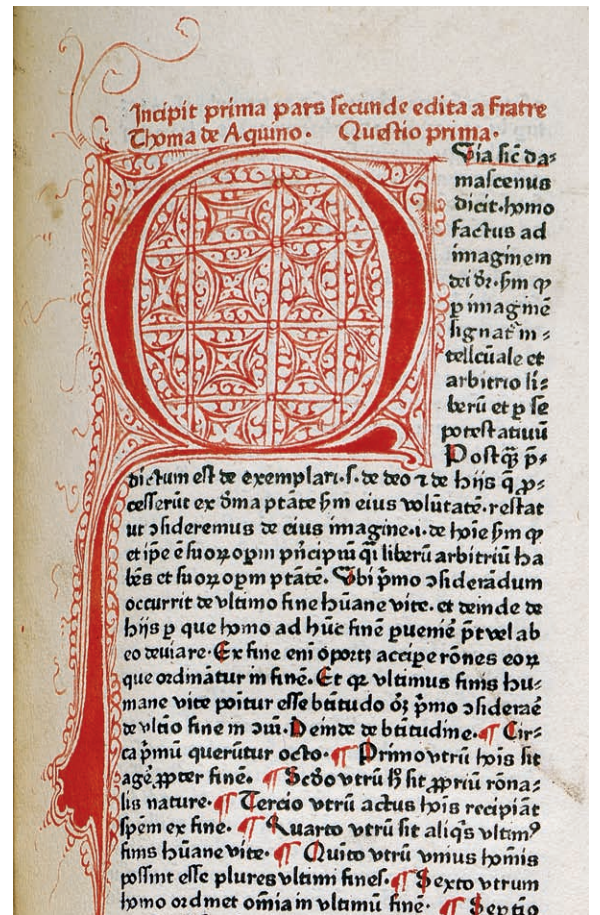 Incipit prima pars secunde edita a fratre
Thoma de Aquino. Questio prima.
Quia sic̄ da⸗
mascenus
dicit. homo
factus ad
imaginem
dei dr̄. sm̄ ꝙ
ꝑ imaginē
signat̄ in⸗
tellcūale et
arbitrio li⸗
berū et ꝑ se
potestatiuū
Postqꝫ p̄⸗
dictum est de exemplari. s. de deo ⁊ de hijs q̄ ꝓ⸗
cesserūt ex diuīa ptāte sm̄ eius volūtatē. restat
ut ↄsideremus de eius imagine. i. de hoīe sm̄ ꝙ
et ip̄e ē suoꝝ opm̄ pn̄cipiū q̄i liberū arbitriū ha
bēs et suoꝝ opm̄ ptātē. Vbi pͥmo ↄsiderādum
occurrit de vltimo fine hūane vite. et deinde de
hijs ꝑ que homo ad hūc finē ꝑueniē pt̄ vel ab
eo deuiare. Ex fine enī oportꝫ accipe rōnes eoꝝ
que ordināt̄ur in finē. Et qꝛ vltimus finis hu⸗
mane vite poītur esse btītudo oꝫ pͥmo ↄsideraē
de vltīo fine in ↄūi. Deinde de btītudine. ¶ Cir⸗
ca pͥmū querūtur octo. ¶ Primo vtrū hoīs sit
agē ꝓpter finē. ¶ Secd̄o vtrū h̄ sit ꝓpriū rōna⸗
lis nature. ¶ Tercio vtrū actus hoīs recipiāt
spēm ex fine. ¶ Quarto vtrū sit aliqͥs vltimꝰ
finis hūane vite. ¶ Quīto vtrū vnius homīs
possint esse plures vltimi fines. ¶ Sexto vtrum
homo ordinet omīa in vltimū finē. ¶ Septīo